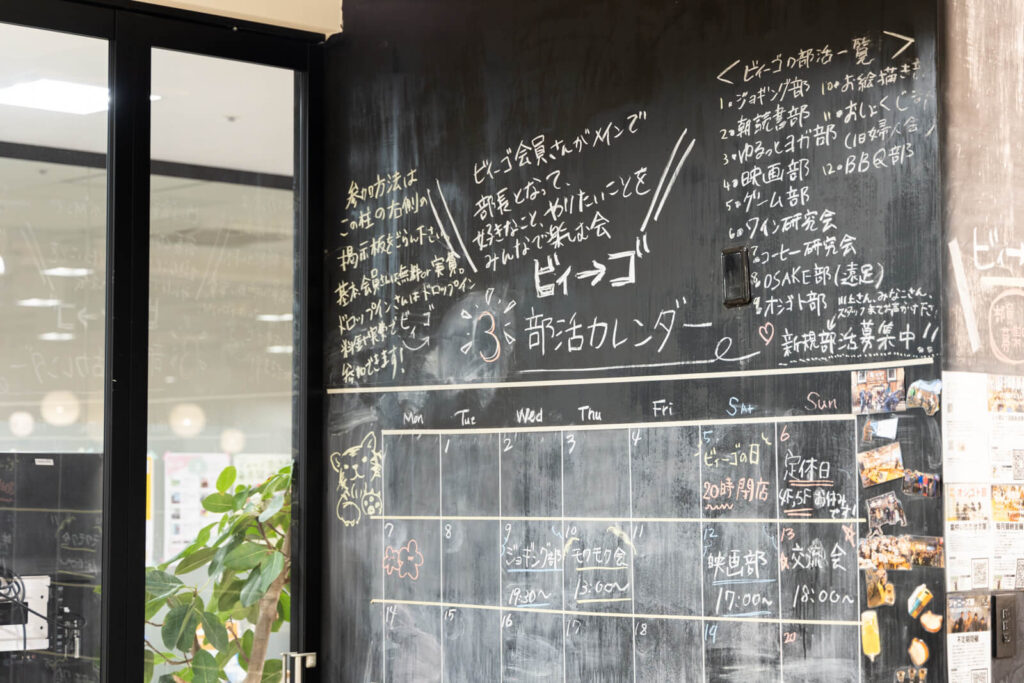 参加方法は
この柱の右側の
掲示板をごらんください
基本会員さんは無料or実費。
ドロップインさんはドロップイン
料金+実費で
参加できます!
ビィーゴ会員さんがメインで
部長となって、
好きなこと、やりたいことを
みんなで楽しむ会
ビィ→ゴ
3 部活カレンダー
<ビィーゴの部活一覧>
1.ジョギング部 10.お絵描き部
2.朝読書部 11.おしょくじ
3.ゆるっとヨガ部 (旧婦人会)
4.映画部 12.BBQ部
5.ゲーム部
6.ワイン研究会
7.コーヒー研究会
8.OSAKE部(遠足)
9.オシゴト部
スタッフまでお声かけ下さい
新規部活募集中!!
Mon Tue Wed Thu Fri Sat Sun
1 2 3 4 5 6
ビィーゴの日
20時閉店
定休日
4F.5Fお休み
です!
7 8 9 10 11 12 13
ジョギング部
19:30~
モクモク会
13:00~
映画部
17:00~
交流会
18:00~
14 15 16 17 18 19 20